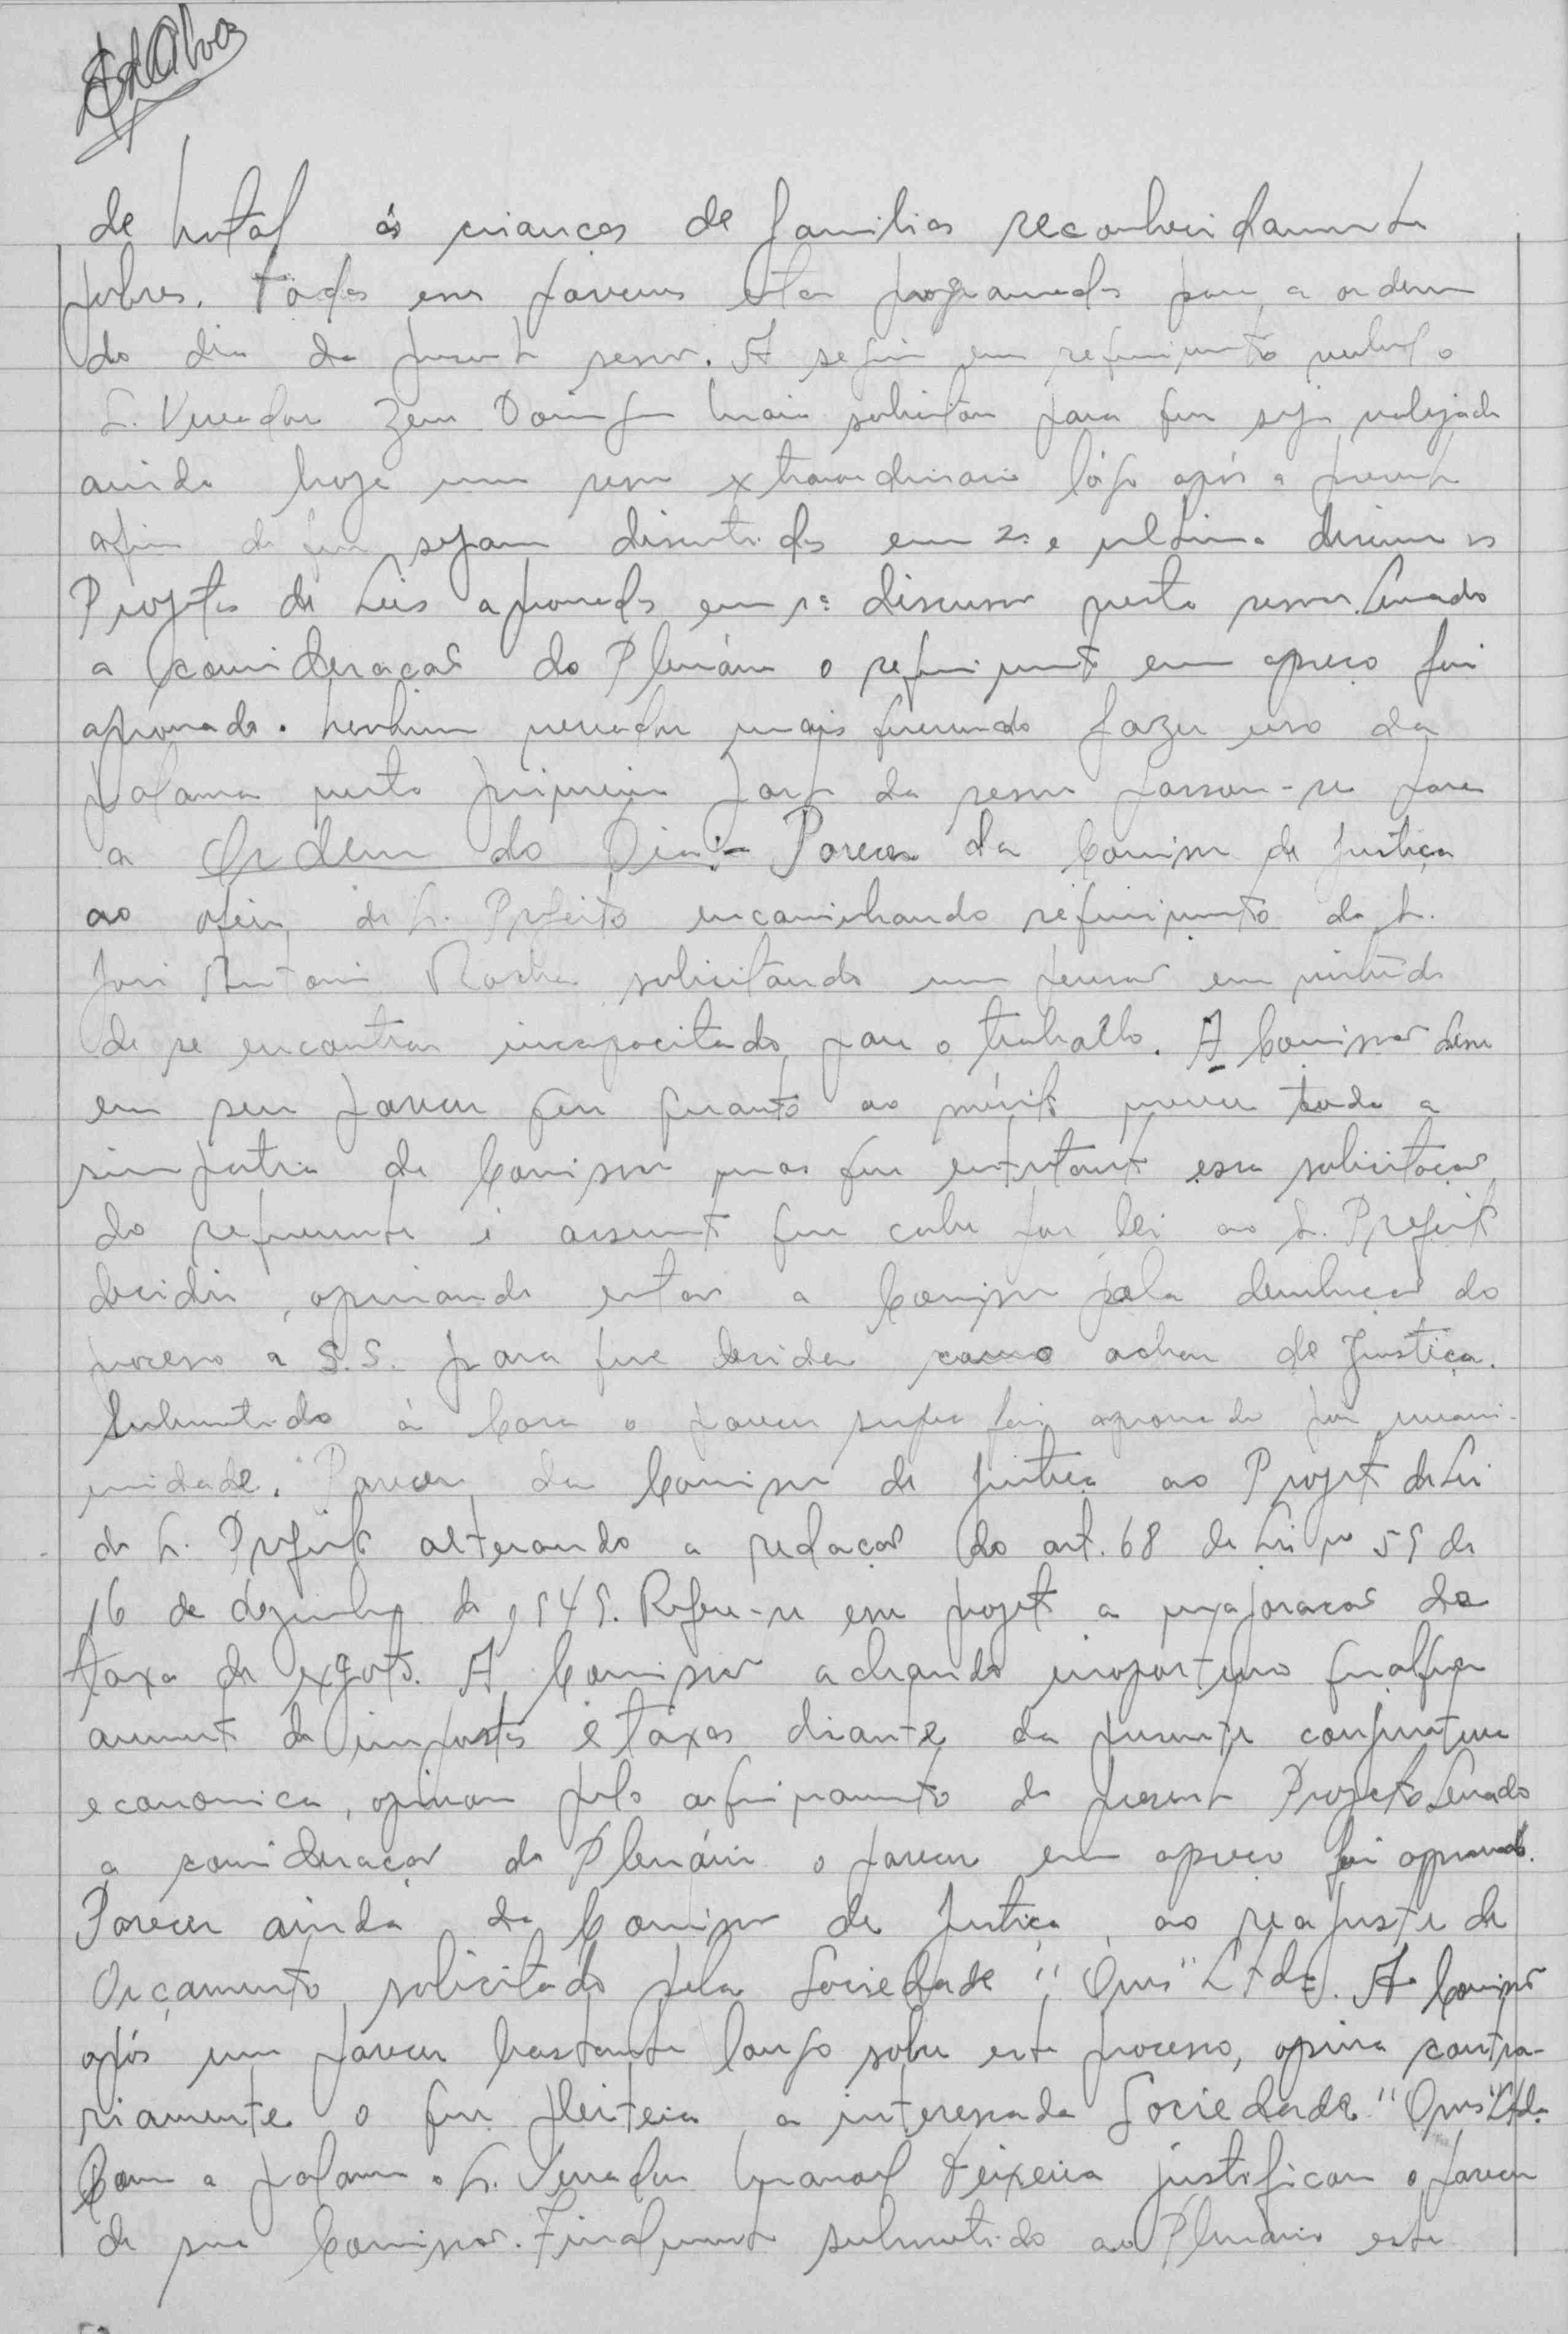 de Natal ás crianças de familias reconhecidamente
pobres. Todos esses pareceres estão programados para a ordem
do dia da presente sessão. A seguir em requerimento verbal o
S. Vereador Maia solicitou para que seja realizada
ainda hoje uma sessão extraordinaria lógo após a presente
afim de que sejam discutidos em 2ª e ultima discussão os
Projetos de Leis aprovados em 1ª discussão nesta sessão. Levado
a consideração do Plenário o requerimento em apreço foi
aprovado. Nenhum vereador mais querendo fazer uso da
palavra nesta primeira parte da sessão passou-se para
a Ordem do Dia:- Parecer da Comissão de Justiça
ao oficio do S. Prefeito encaminhando requerimento do S.
José Antonio Rocha solicitando uma pensão em virtude
de se encontrar incapacitado para o trabalho. A Comissão disse
em seu parecer que quanto ao mérito merece toda a
simpatia da Comissão mas que entretanto essa solicitação
do requerente é assunto que cabe por lei ao S. Prefeito
decidir, opinando então a Comissão pela devolução do
processo a S.S. para que decida como achar de Justiça.
Submetido á Casa o parecer supra foi aprovado por unani-
midade. Parecer da Comissão de Justiça ao Projeto de Lei
do S. Prefeito alterando a redação do art. 68 da Lei nº 59 de
16 de dezembro de 1949. Refere-se esse projeto a majoração da
taxa de exgoto. A Comissão achando inoportuno qualquer
aumento de impostos e taxas diante da presente conjuntura
economica, opinou pelo arquivamento do presente Projeto. Levado
a consideração do Plenário o parecer em apreço foi aprovado.
Parecer ainda da Comissão de Justiça ao reajuste de
Orçamento solicitado pela Sociedade "Opus" Ltda. A Comissão
após um parecer bastante longo sobre este processo, opina contra-
riamente o que pleiteia a interessada Sociedade "Opus" Ltda
Com a palavra o S. Vereador Manoel Teixeira justificou o parecer
de sua Comissão. Finalmente submetido ao Plenário este